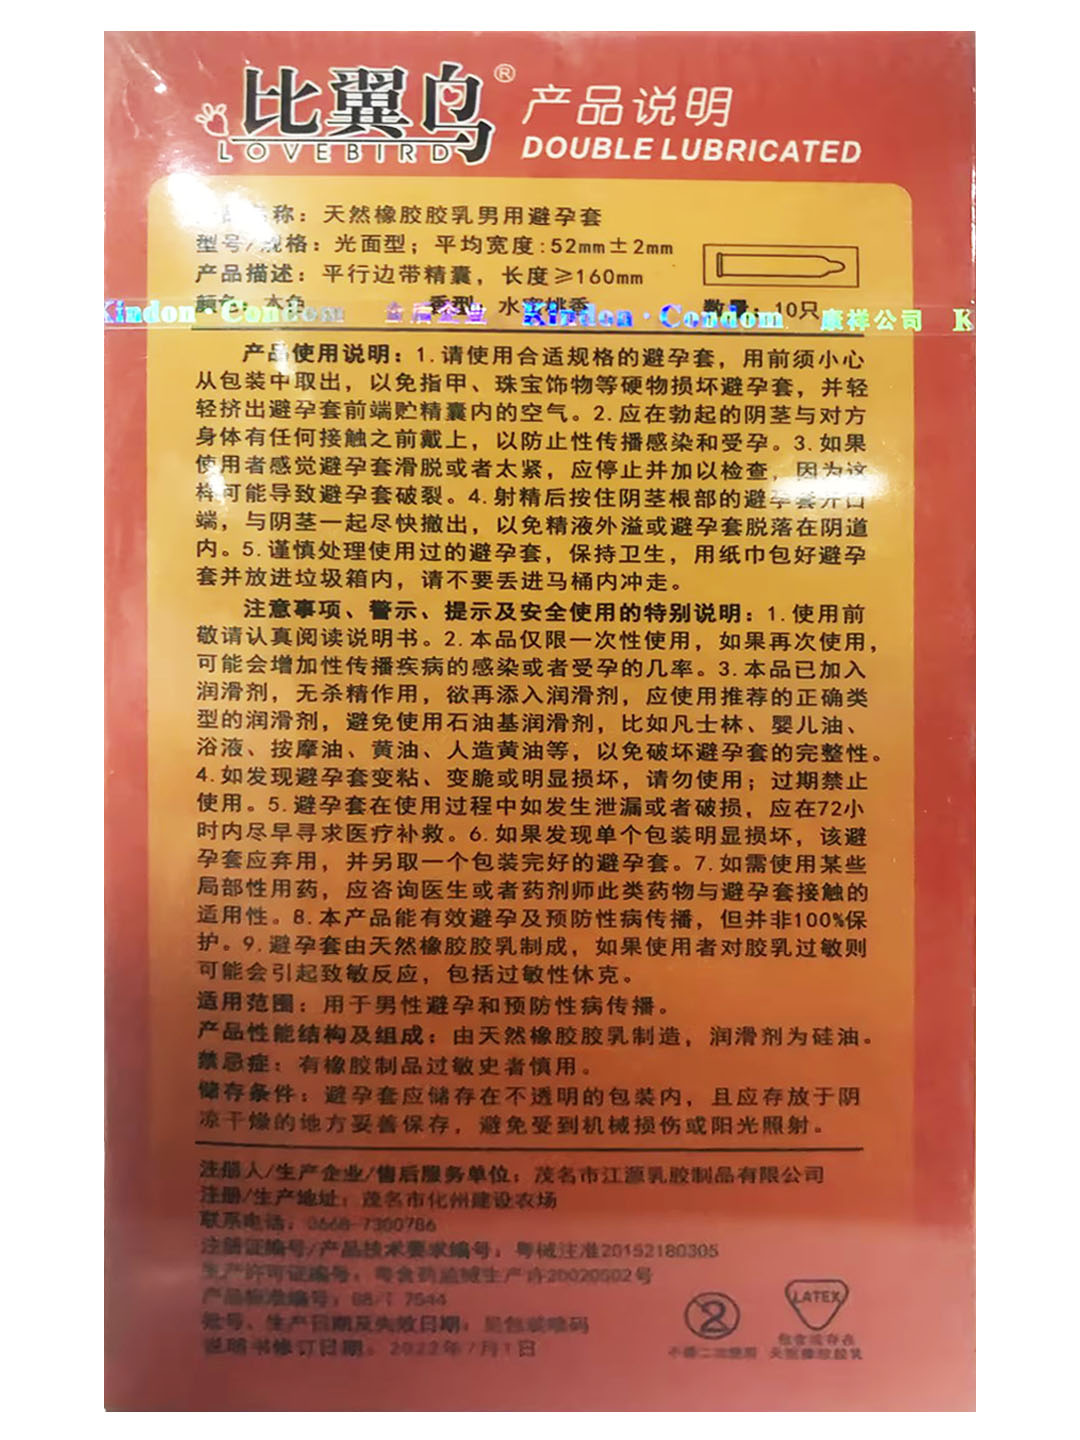 比翼鸟® 产品说明
LOVEBIRD DOUBLE LUBRICATED
称：天然橡胶胶乳男用避孕套
型号/规格：光面型；平均宽度：52mm±2mm
产品描述：平行边带精囊，长度≥160mm
颜色：本色 香型 水蜜桃香 数量：10只
Kindon·Condom Kindon·Condom 康祥公司 K
产品使用说明：1.请使用合适规格的避孕套，用前须小心
从包装中取出，以免指甲、珠宝饰物等硬物损坏避孕套，并轻
轻挤出避孕套前端贮精囊内的空气。2.应在勃起的阴茎与对方
身体有任何接触之前戴上，以防止性传播感染和受孕。3.如果
使用者感觉避孕套滑脱或者太紧，应停止并加以检查，因为这
样可能导致避孕套破裂。4.射精后按住阴茎根部的避孕套开口
端，与阴茎一起尽快撤出，以免精液外溢或避孕套脱落在阴道
内。5.谨慎处理使用过的避孕套，保持卫生，用纸巾包好避孕
套并放进垃圾箱内，请不要丢进马桶内冲走。
注意事项、警示、提示及安全使用的特别说明：1.使用前
敬请认真阅读说明书。2.本品仅限一次性使用，如果再次使用，
可能会增加性传播疾病的感染或者受孕的几率。3.本品已加入
润滑剂，无杀精作用，欲再添入润滑剂，应使用推荐的正确类
型的润滑剂，避免使用石油基润滑剂，比如凡士林、婴儿油、
浴液、按摩油、黄油、人造黄油等，以免破坏避孕套的完整性。
4.如发现避孕套变粘、变脆或明显损坏，请勿使用；过期禁止
使用。5.避孕套在使用过程中如发生泄漏或者破损，应在72小
时内尽早寻求医疗补救。6.如果发现单个包装明显损坏，该避
孕套应弃用，并另取一个包装完好的避孕套。7.如需使用某些
局部性用药，应咨询医生或者药剂师此类药物与避孕套接触的
适用性。8.本产品能有效避孕及预防性病传播，但并非100%保
护。9.避孕套由天然橡胶胶乳制成，如果使用者对胶乳过敏则
可能会引起致敏反应，包括过敏性休克。
适用范围：用于男性避孕和预防性病传播。
产品性能结构及组成：由天然橡胶胶乳制造，润滑剂为硅油。
禁忌症：有橡胶制品过敏史者慎用。
储存条件：避孕套应储存在不透明的包装内，且应存放于阴
凉干燥的地方妥善保存，避免受到机械损伤或阳光照射。
注册人/生产企业/售后服务单位：茂名市江源乳胶制品有限公司
注册/生产地址：茂名市化州建设农场
联系电话：0668-7300786
注册证编号/产品技术要求编号：粤械注准20152180305
生产许可证编号：粤食药监械生产许20020502号
产品标准编号：GB/T 7544
批号、生产日期及失效日期：见包装喷码
说明书修订日期：2022年7月1日
2
不得二次使用
LATEX
包含或存在
天然橡胶胶乳